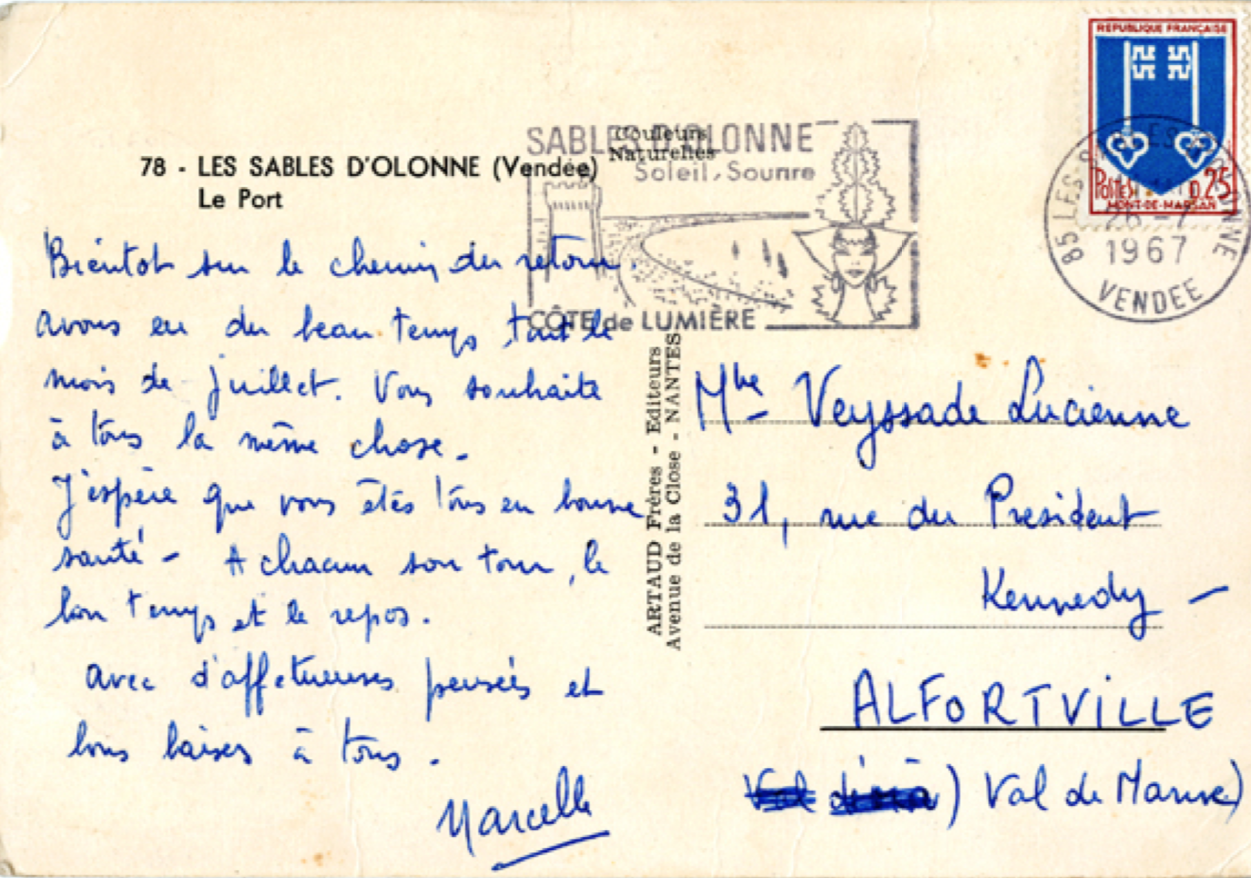 78 - LES SABLES D'OLONNE (Vendée)
Le Port
Couleurs
Naturelles
SABLES D'OLONNE
Soleil, Sourire
CÔTE de LUMIÈRE
REPUBLIQUE FRANÇAISE
POSTES 0,25
MONT-DE-MARSAN
85 LES SABLES D'OLONNE
26 -7
1967
VENDEE
Bientôt sur le chemin du retour.
avons eu du beau temps tout le
mois de juillet. Vous souhaite
à tous la même chose -
J'espère que vous êtes tous en bonne
santé - A chacun son tour, le
bon temps et le repos.
avec d'affetueuses pensées et
bons baisers à tous.
Marcelle
ARTAUD Frères - Editeurs
Avenue de la Close - NANTES
Mme Veyssade Lucienne
31, rue du President
Kennedy -
ALFORTVILLE
Val de Marne)